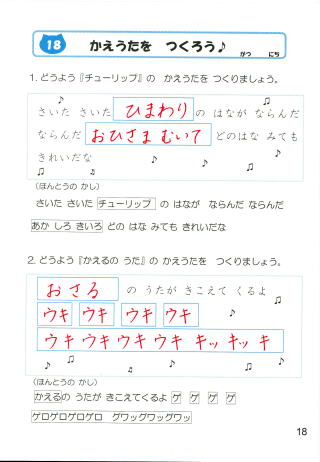 18 かえうたを つくろう♪ がつ にち
1. どうよう『チューリップ』の かえうたを つくりましょう。
さいた さいた ひまわり の はなが ならんだ
ならんだ おひさま むいて どのはな みても
きれいだな
(ほんとうの かし)
さいた さいた チューリップ の はなが ならんだ ならんだ
あか しろ きいろ どの はな みても きれいだな
2. どうよう『かえるの うた』の かえうたを つくりましょう。
おさる の うたが きこえて くるよ
ウキ ウキ ウキ ウキ
ウキ ウキ ウキ ウキ キッ キッ キ
(ほんとうの かし)
かえるの うたが きこえてくるよ ゲ ゲ ゲ ゲ
ゲロゲロゲロゲロ グワッグワッグワッ
18